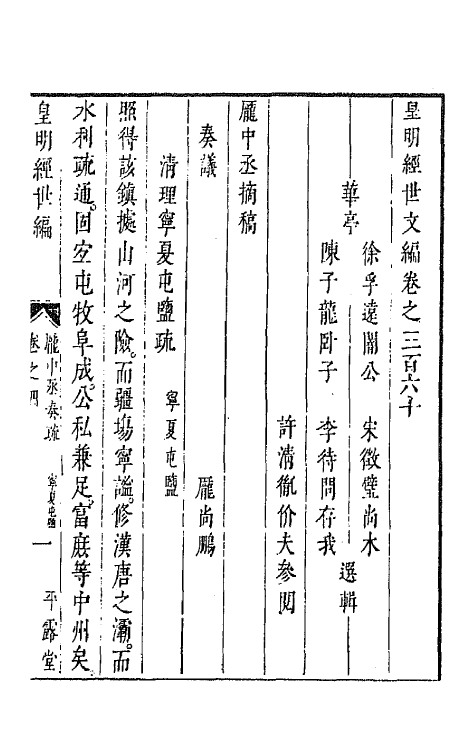 皇明經世文編卷之三百六十
華亭
徐孚遠闇公 宋徵璧尚木
陳子龍臥子 李待問存我
選輯
許清胤价夫參閱
龐中丞摘稿
奏議 龐尚鵬
清理寧夏屯鹽疏 寧夏屯鹽
照得該鎮據山河之險。而疆場寧謐。修漢唐之灞。而
水利疏通。固宜屯牧阜成。公私兼足。富庶等中州矣。
皇明經世編
龐中丞奏疏 寧夏屯鹽
卷之四 一 平露堂